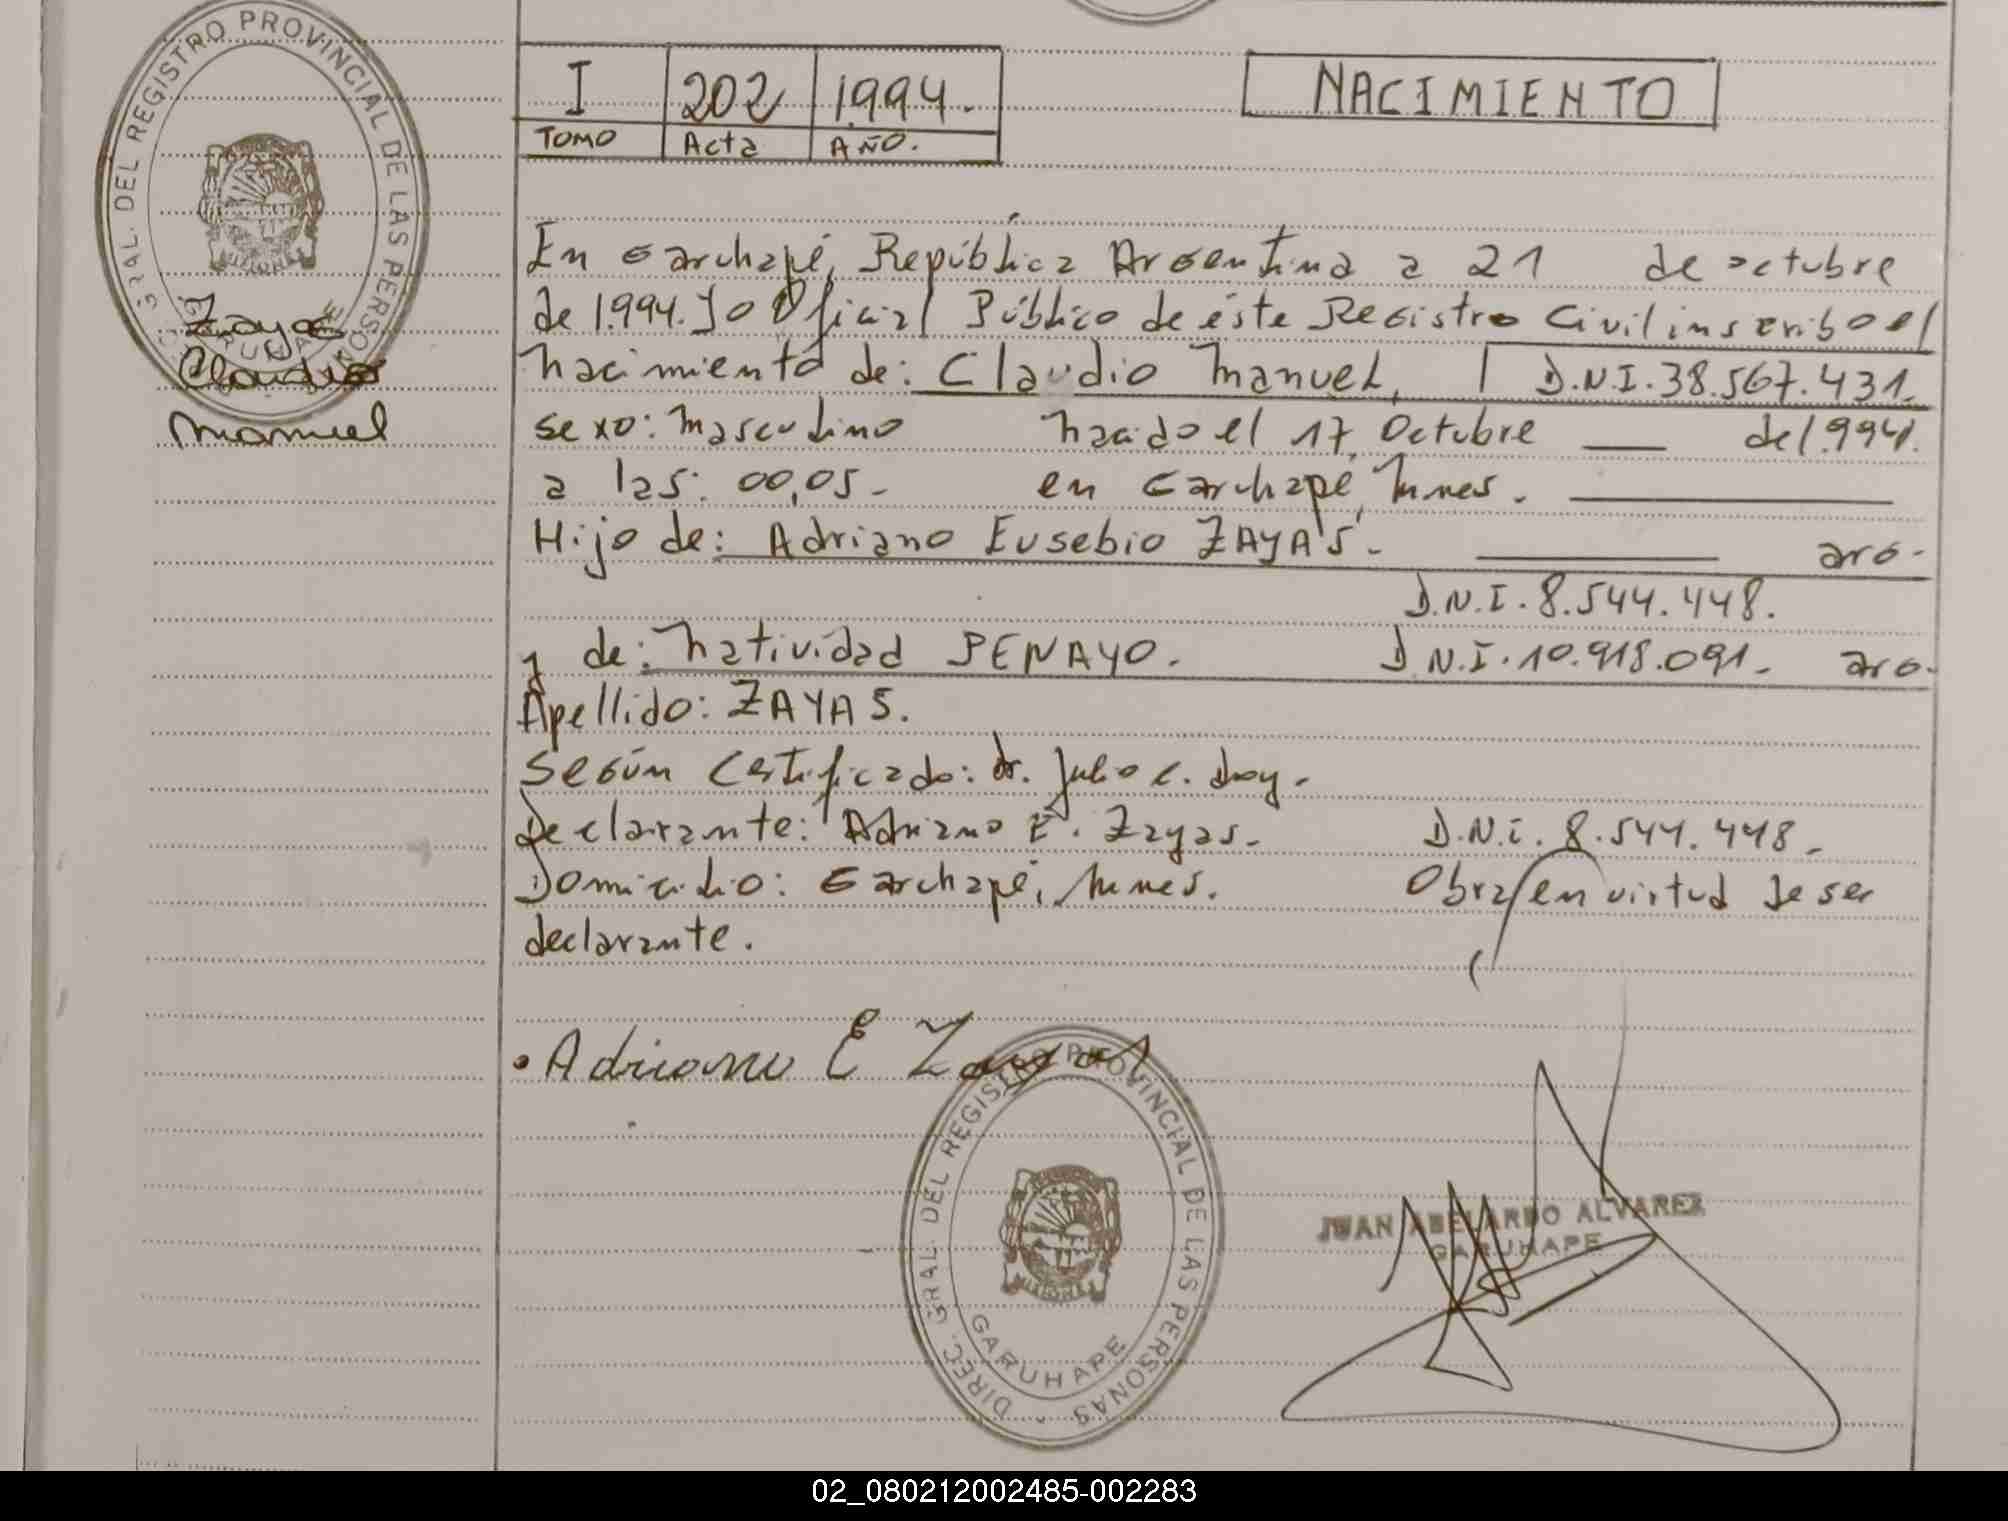 DIREC. GRAL. DEL REGISTRO PROVINCIAL DE LAS PERSONAS
GARUHAPE
MISIONES
Zayas
Claudio
Manuel
I 202 1.994.
TOMO Acta AÑO.
NACIMIENTO
En Garuhapé, República Argentina a 21 de octubre
de 1.994. Yo Oficial Público de éste Registro Civil inscribo el
nacimiento de: Claudio Manuel, D.N.I. 38.567.431.
sexo: masculino nacido el 17, Octubre de 1.994.
a las: 00,05. en Garuhapé, Mnes.
Hijo de: Adriano Eusebio ZAYAS. arg.
D.N.I. 8.544.448.
y de: Natividad PENAYO. D.N.I. 10.918.091. arg.
Apellido: ZAYAS.
Según Certificado: dr. Julio C. Doy.
Declarante: Adriano E. Zayas. D.N.I. 8.544.448.
Domicilio: Garuhapé, Mnes. Obra en virtud de ser
declarante.
Adriano E Zayas
DIREC. GRAL. DEL REGISTRO PROVINCIAL DE LAS PERSONAS
MISIONES
GARUHAPE
JUAN ABELARDO ALVAREZ
GARUHAPE
02_080212002485-002283